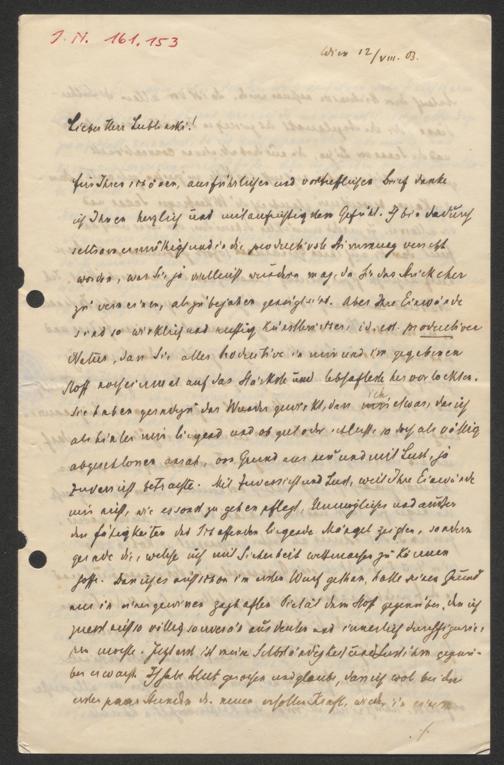 J. N. 161.153
Wien 12/VIII. 03.
Lieber Herr Lublinski!
für Ihren schönen, ausführlichen und vortrefflichen Brief danke
ich Ihnen herzlich und mit aufrichtigem Gefühl. Ich bin dadurch
seltsam ermuthigt und in die productivste Stimmung versetzt
worden, was Sie ja vielleicht wundern mag, da Sie das Stück eher
zu verneinen, als zu bejahen geneigt sind. Aber Ihre Einwände
sind so wirklich und künstlerischer, id. est. productiver
Natur, dass Sie alles Productive in mir und im gegebenen
Stoff noch einmal auf das Stärkste und Lebhafteste hervorlockten.
Sie haben geradezu das Wunder gewirkt, dass ich etwas, das ich
als hinter mir liegend und ob gut oder schlecht, so doch als völlig
abgeschlossen ansah, von Grund aus neu und mit Lust, ja
Zuversicht betrachte. Mit Zuversicht und Lust, weil Ihre Einwände
mir nicht, wie es sonst zu gehen pflegt, Unmögliches und außer
den Fähigkeiten des Schaffenden liegende Mängel zeigen, sondern
gerade die, welche ich mit Sicherheit wettmachen zu können
hoffe. Dass ich es nicht schon im ersten Wurf gethan, hatte seinen Grund
nur in einer gewissen zaghaften Pietät dem Stoff gegenüber, den ich
zuerst nicht so völlig souverän ausdeuten und innerlich
mochte. Jetzt erst ist meine Selbständigkeit und Lust ihm gegenü-
ber erwacht. Ich habe Blut gerochen und glaube, dass ich wol bei der
ersten paar Stunden der neuen erhofften Kraft, wieder in einem
./.